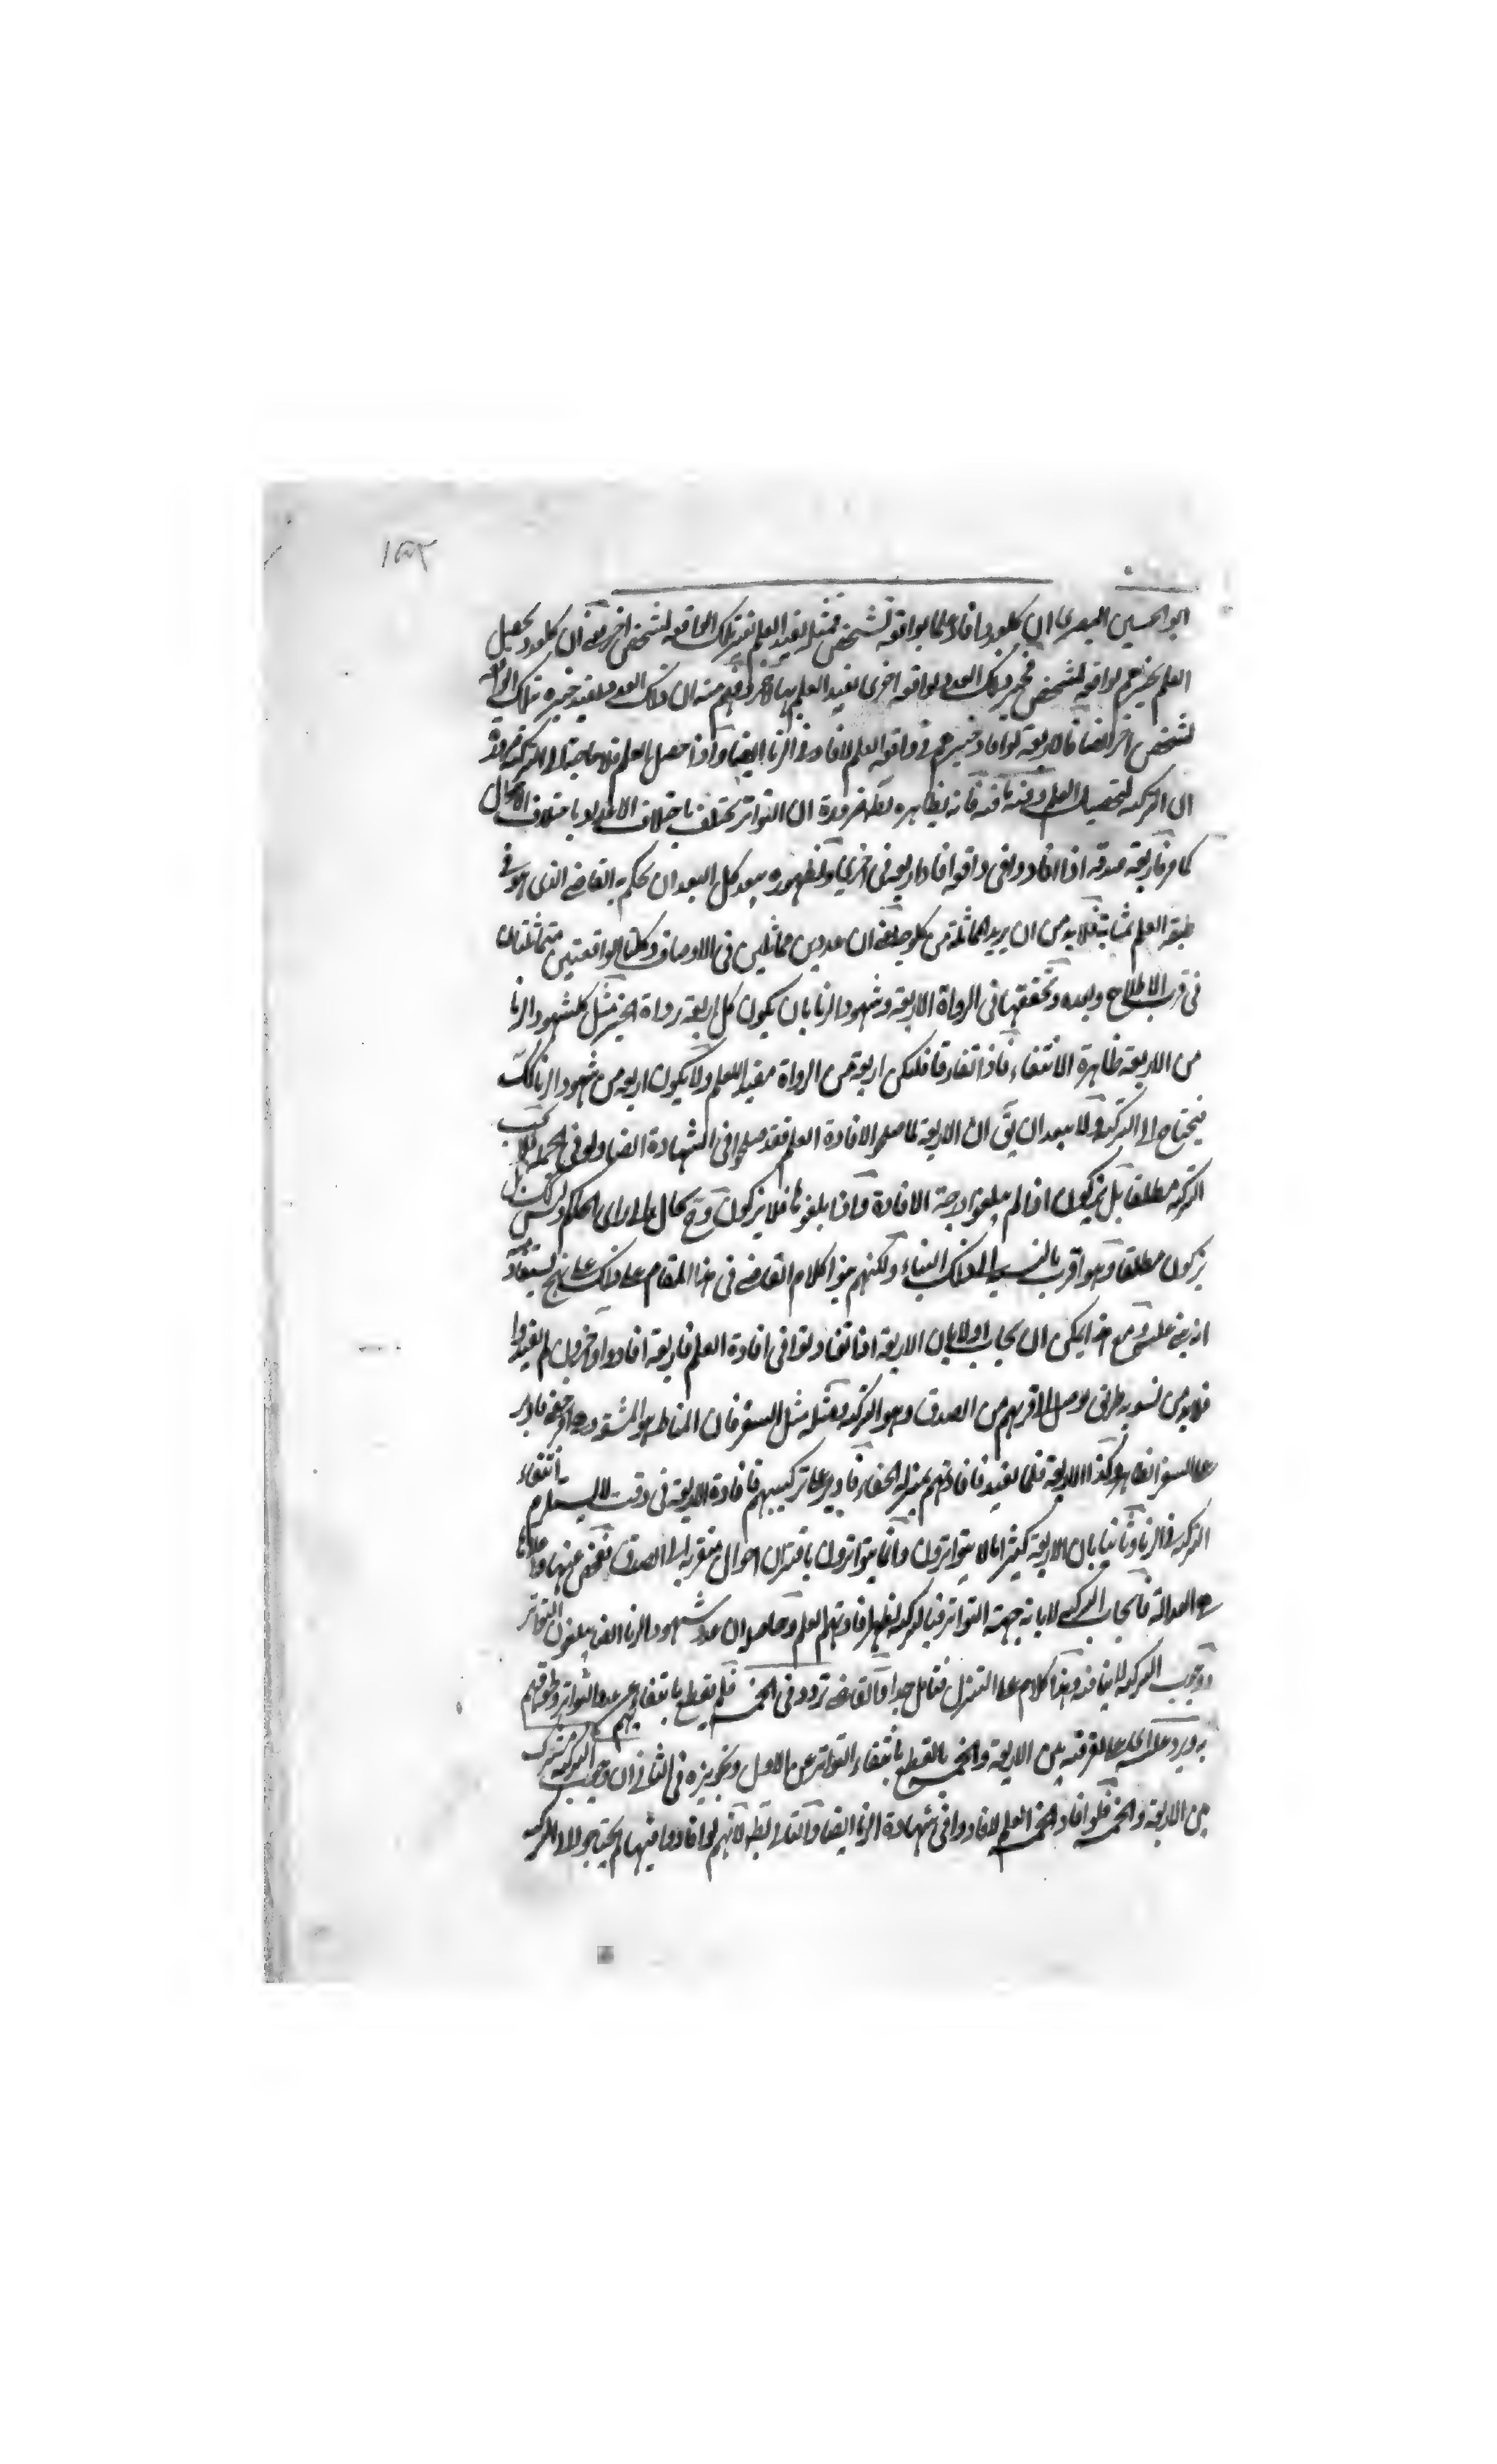 ١٥٢
ابو الحسين البصرى ان كل عدد افاد علما بواقعة لشخص فمثله يفيد العلم بغير تلك الواقعة لشخص اخر يعنى ان كل عدد يحصل
العلم بخبرهم لواقعة لشخص فخبر ذلك العدد لواقعة اخرى يفيد العلم بها لاخر وفهم منه ان ذلك العدد يفيد خبره تلك الواقعة
لشخص اخر ايضا فالاربعة لو افاد خبرهم فى واقعة العلم لافاد فى الزنا ايضا واذا حصل العلم فلا حاجة الى التزكية ضرورة
ان التزكية لتحصيل العلم وفيه ما فيه فانه بظاهره بط ضرورة ان التواتر يختلف باختلاف الاعداد و باختلاف الاحوال
كما مر فاربعة صدقة اذا افادوا فى واقعة افاد اربعة فى اخرى ولظهوره يبعد كل البعد ان يحكم به القاضى الذى هو فى
طبقة العلم بمثابة فلابد من ان يريد المماثلة من كل وجه يعنى ان عددين مماثلين فى الاوصاف وكلتا الواقعتين متماثلتان
فى قرب الاطلاع وبعده وتحققها فى الرواة الاربعة وشهود الزنا بان يكون كل اربعة رواة الخبر مثل كل شهود الزنا
من الاربعة ظاهرة الانتفاء فاذ اتفارقا فليكن اربعة من الرواة مفيدا للعلم ولا يكون اربعة من شهود الزنا كك
فيحتاج الى التزكية ولا يبعد ان يق ان الاربعة لما صلحوا لافادة العلم فقد صلحوا فى الشهادة ايضا ولو فى الجملة فلا يجب
التزكية مطلقا بل يزكون اذا لم يبلغوا درجة الافادة واذا بلغوها فلا يزكون وح يحال الى راى الحاكم وليس كذلك بل
يزكون مطلقا وهو اقرب بالنسبة الى ذلك البناء ولكنهم بنوا كلام القاضى فى هذا المقام على ذلك على نهج يستفاد منه
انه بنى عليه ومع هذا يمكن ان يجاب اولا بان الاربعة اذا تفاوتوا فى افادة العلم فاربعة افادوا واخرون لم يفيدوا
فلابد من تسوية طريق يوصل الى قربهم من الصدق وهو التزكية ومثله مثل السفر فان المناط هو المشقة وهو امر خفى فادير
على السفر الظاهر وكذا الاربعة قلما يفيد فافادتهم بمنزلة الخفاء فادير على تركيبهم فافادة الاربعة فى وقت لا يستلزم انتفاء
التزكية فى الزنا وثانيا بان الاربعة كثيرا ما لا يتواترون وانما يتواترون باقتران احوال مقربة الى الصدق فتفحص عنها وملاكها
هو العدالة فايجاب التزكية لابانة جهة التواتر فبالتزكية يظهر افادتهم العلم وحاصله ان عدد شهود الزنا ايضا يبلغون التواتر
ووجوب التزكية لا ينافيه وهذا كلام على التنزل فتامل جدا والقاضى تردد فى الخمسة فلم يقطع بانتفاء عدد التواتر وطوقهم
به ويرد عليه ما على التفرقة بين الاربعة والخمسة بالقطع بانتفاء التواتر عن الاول وتجويزه فى الثانى ان وجوب التزكية مشترك
بين الاربعة والخمسة فلو افاد الخمسة العلم لافادوا فى شهادة الزنا ايضا والتالى بط لانهم لو افادوا فيها لم يحتاجوا الى التزكية